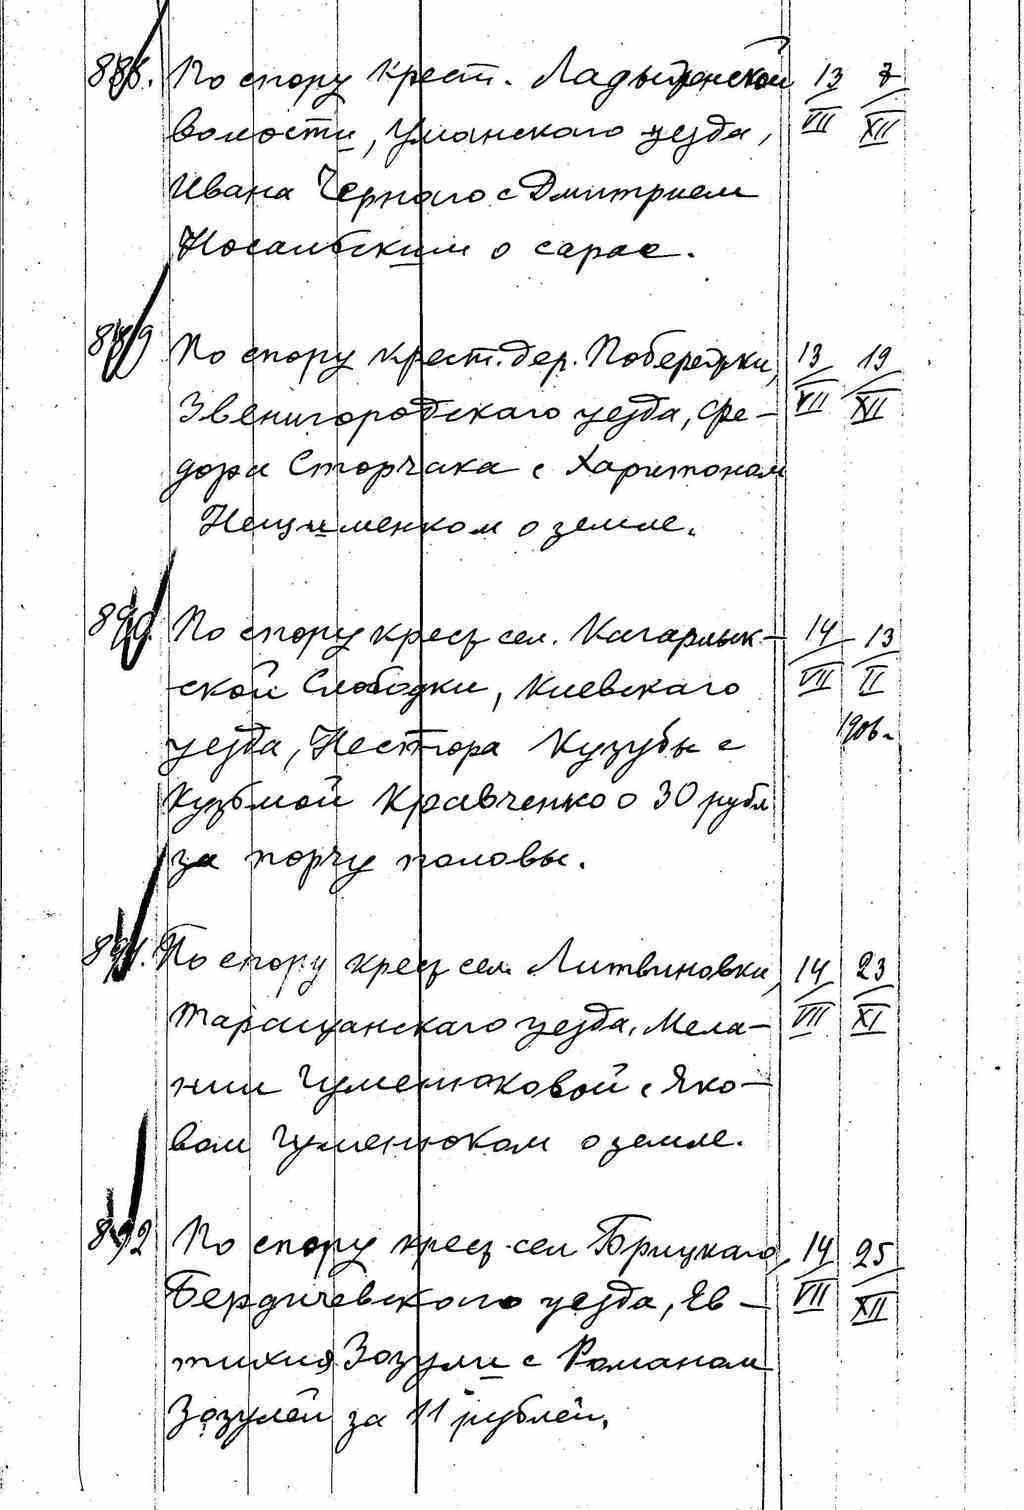 888. По спору крест. Ладыженской 13 7
волости, Уманского уезда, VII XII
Ивана Черного с Дмитрием
Носальским о сарае.
889 По спору крест. дер. Побережки, 13 19
Звенигородскаго уезда, Фе- VII XII
дора Сторчака с Харитоном
Нещименком о земле.
890. По спору крест сел. Кагарлык- 14 13
ской Слободки, Киевскаго VII II
уезда, Нестора Кузубы с 1906 г.
Кузьмой Кравченко о 30 рубл
за порчу половы.
891. По спору крест сел. Литвиновки, 14 23
Таращанскаго уезда, Мела- VII XI
нии Гуменюковой с Яко-
вом Гуменюком о земле.
892 По спору крест. сел Брицкаго, 14 25
Бердичевского уезда, Ев- VII XII
тихия Зозули с Романом
Зозулей за 11 рублей.